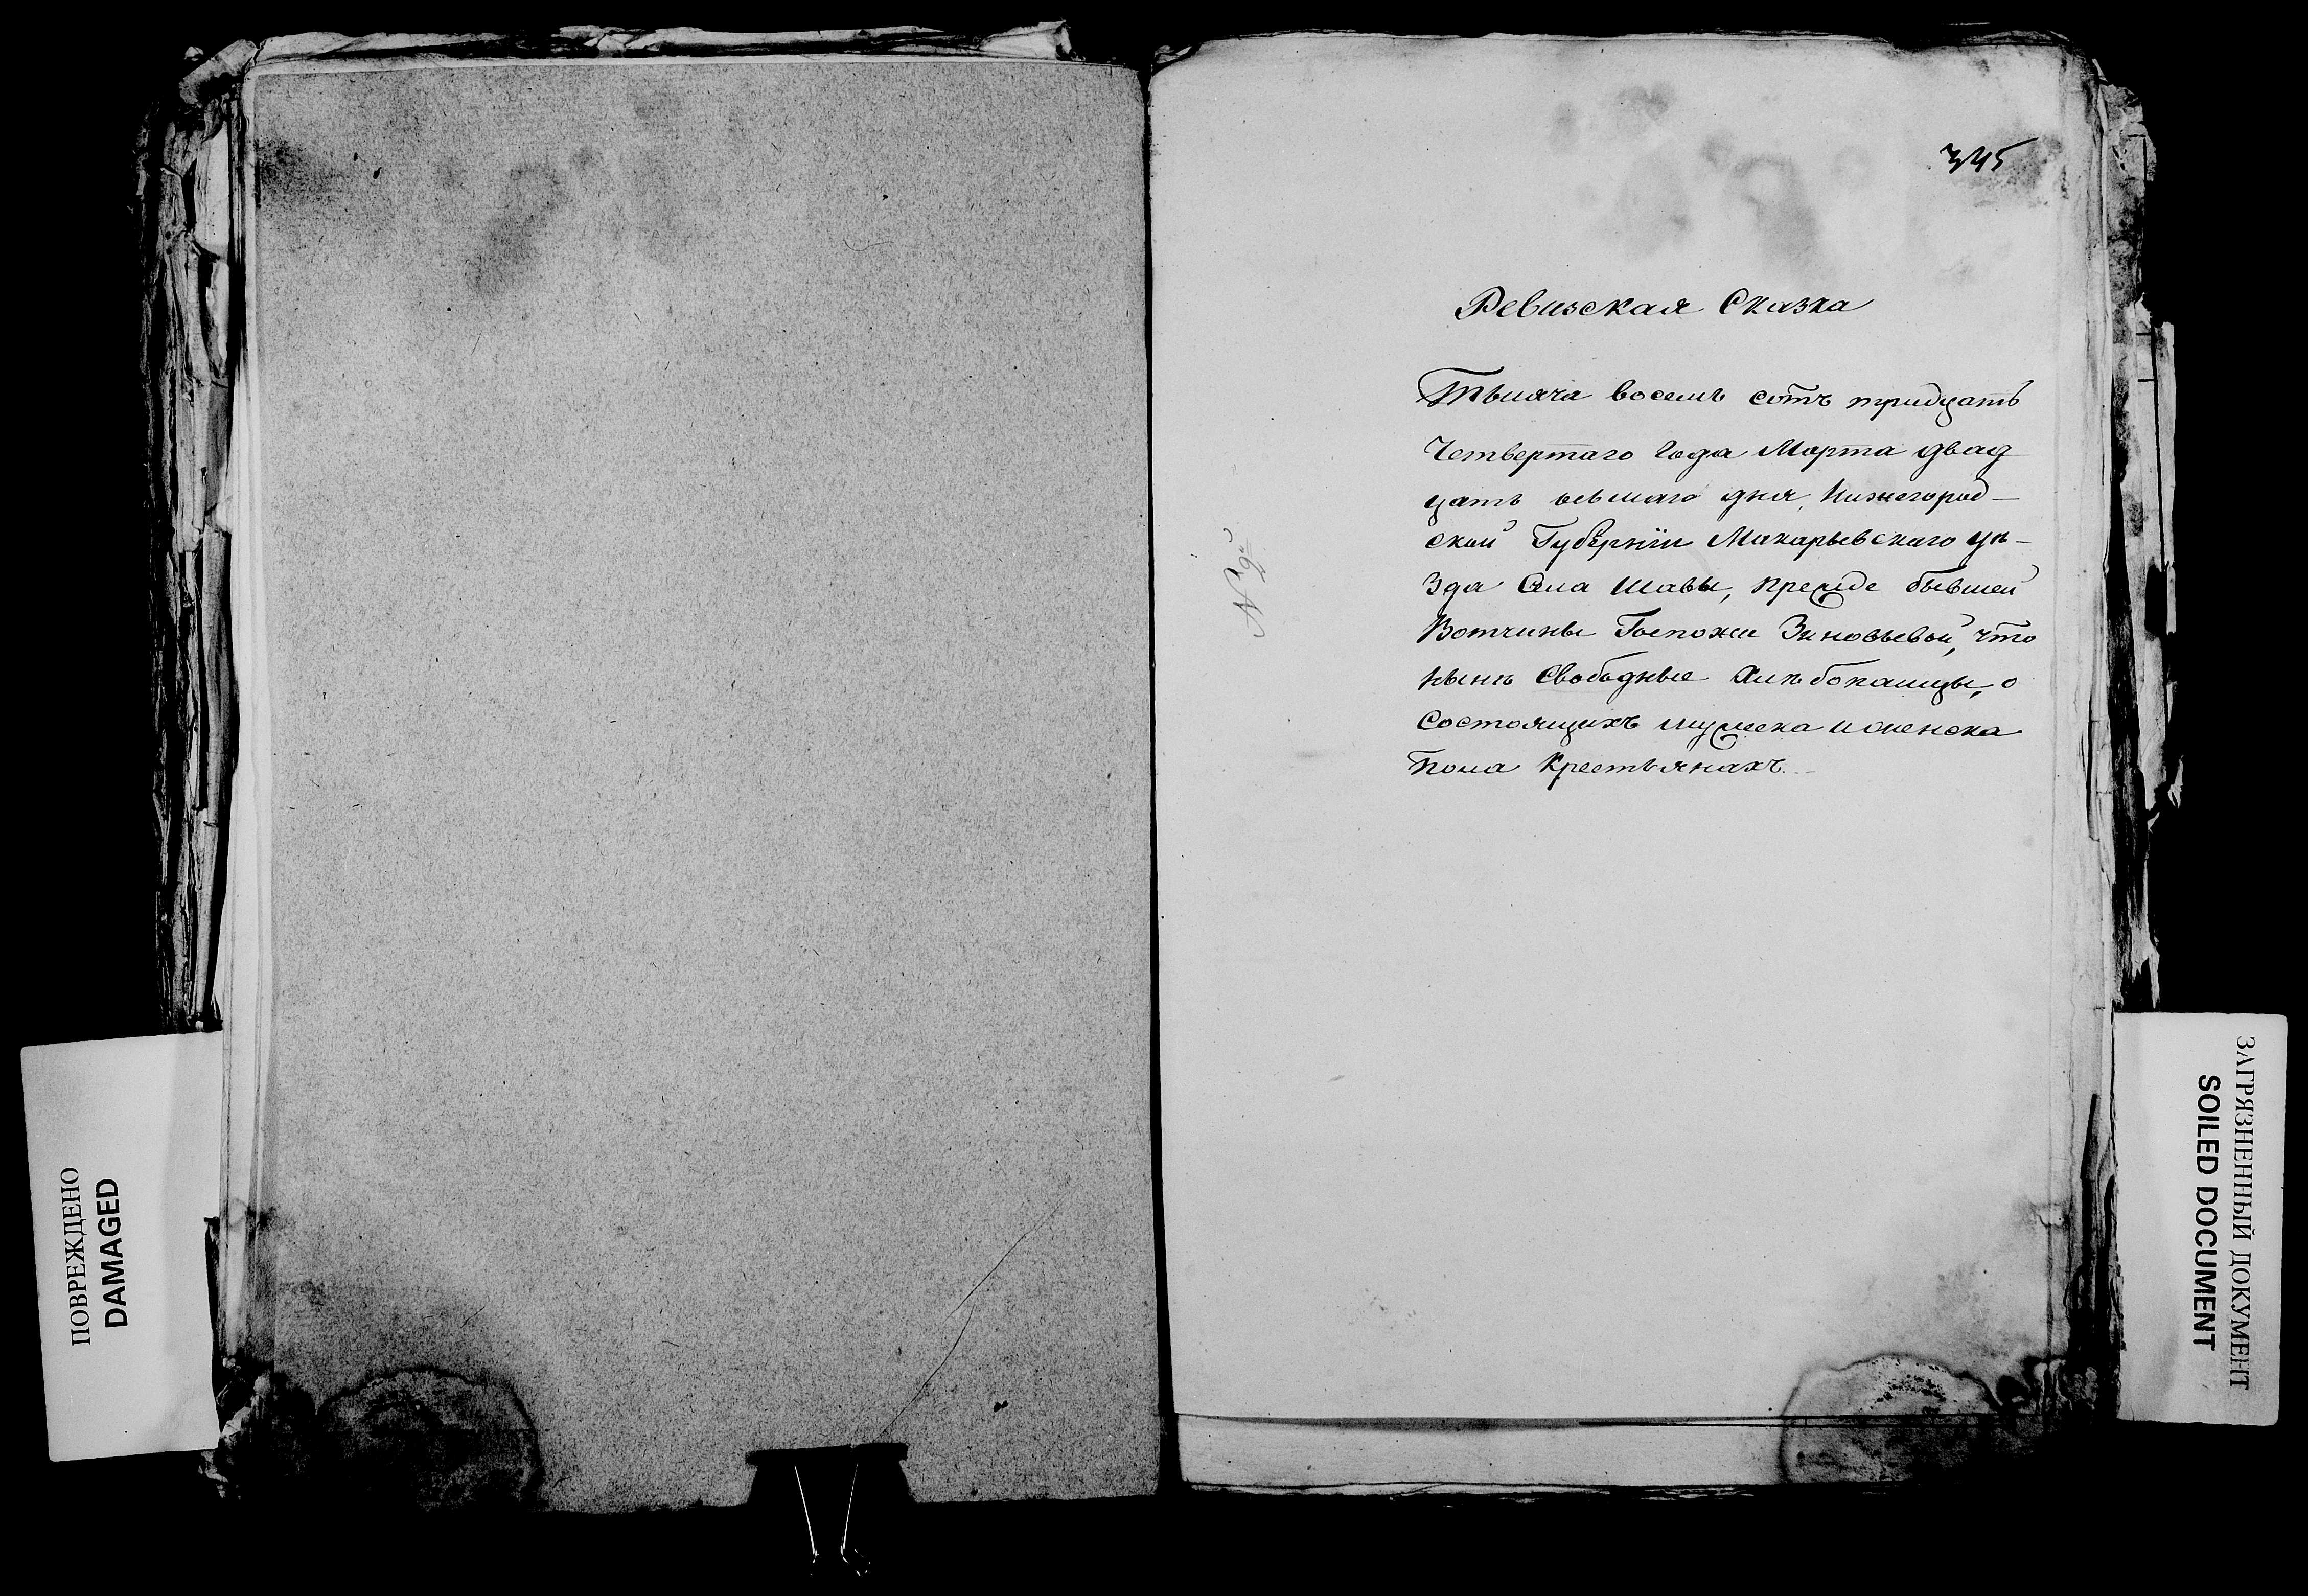 345
Ревизская Сказка
Тысяча восемь сотъ тридцать
Четвертаго года Марта двад
цать осьмаго дня, Нижегород-
ской Губернїи Макарьевскаго уѣ-
зда Села Шавы, прежде бывшей
Вотчины Госпожи Зиновьевой, что
нынѣ Свободные Хлѣбопашцы, о
состоящихъ мужеска и женска
пола Крестьянахъ.
ПОВРЕЖДЕНО
DAMAGED
ЗАГРЯЗНЕННЫЙ ДОКУМЕНТ
SOILED DOCUMENT